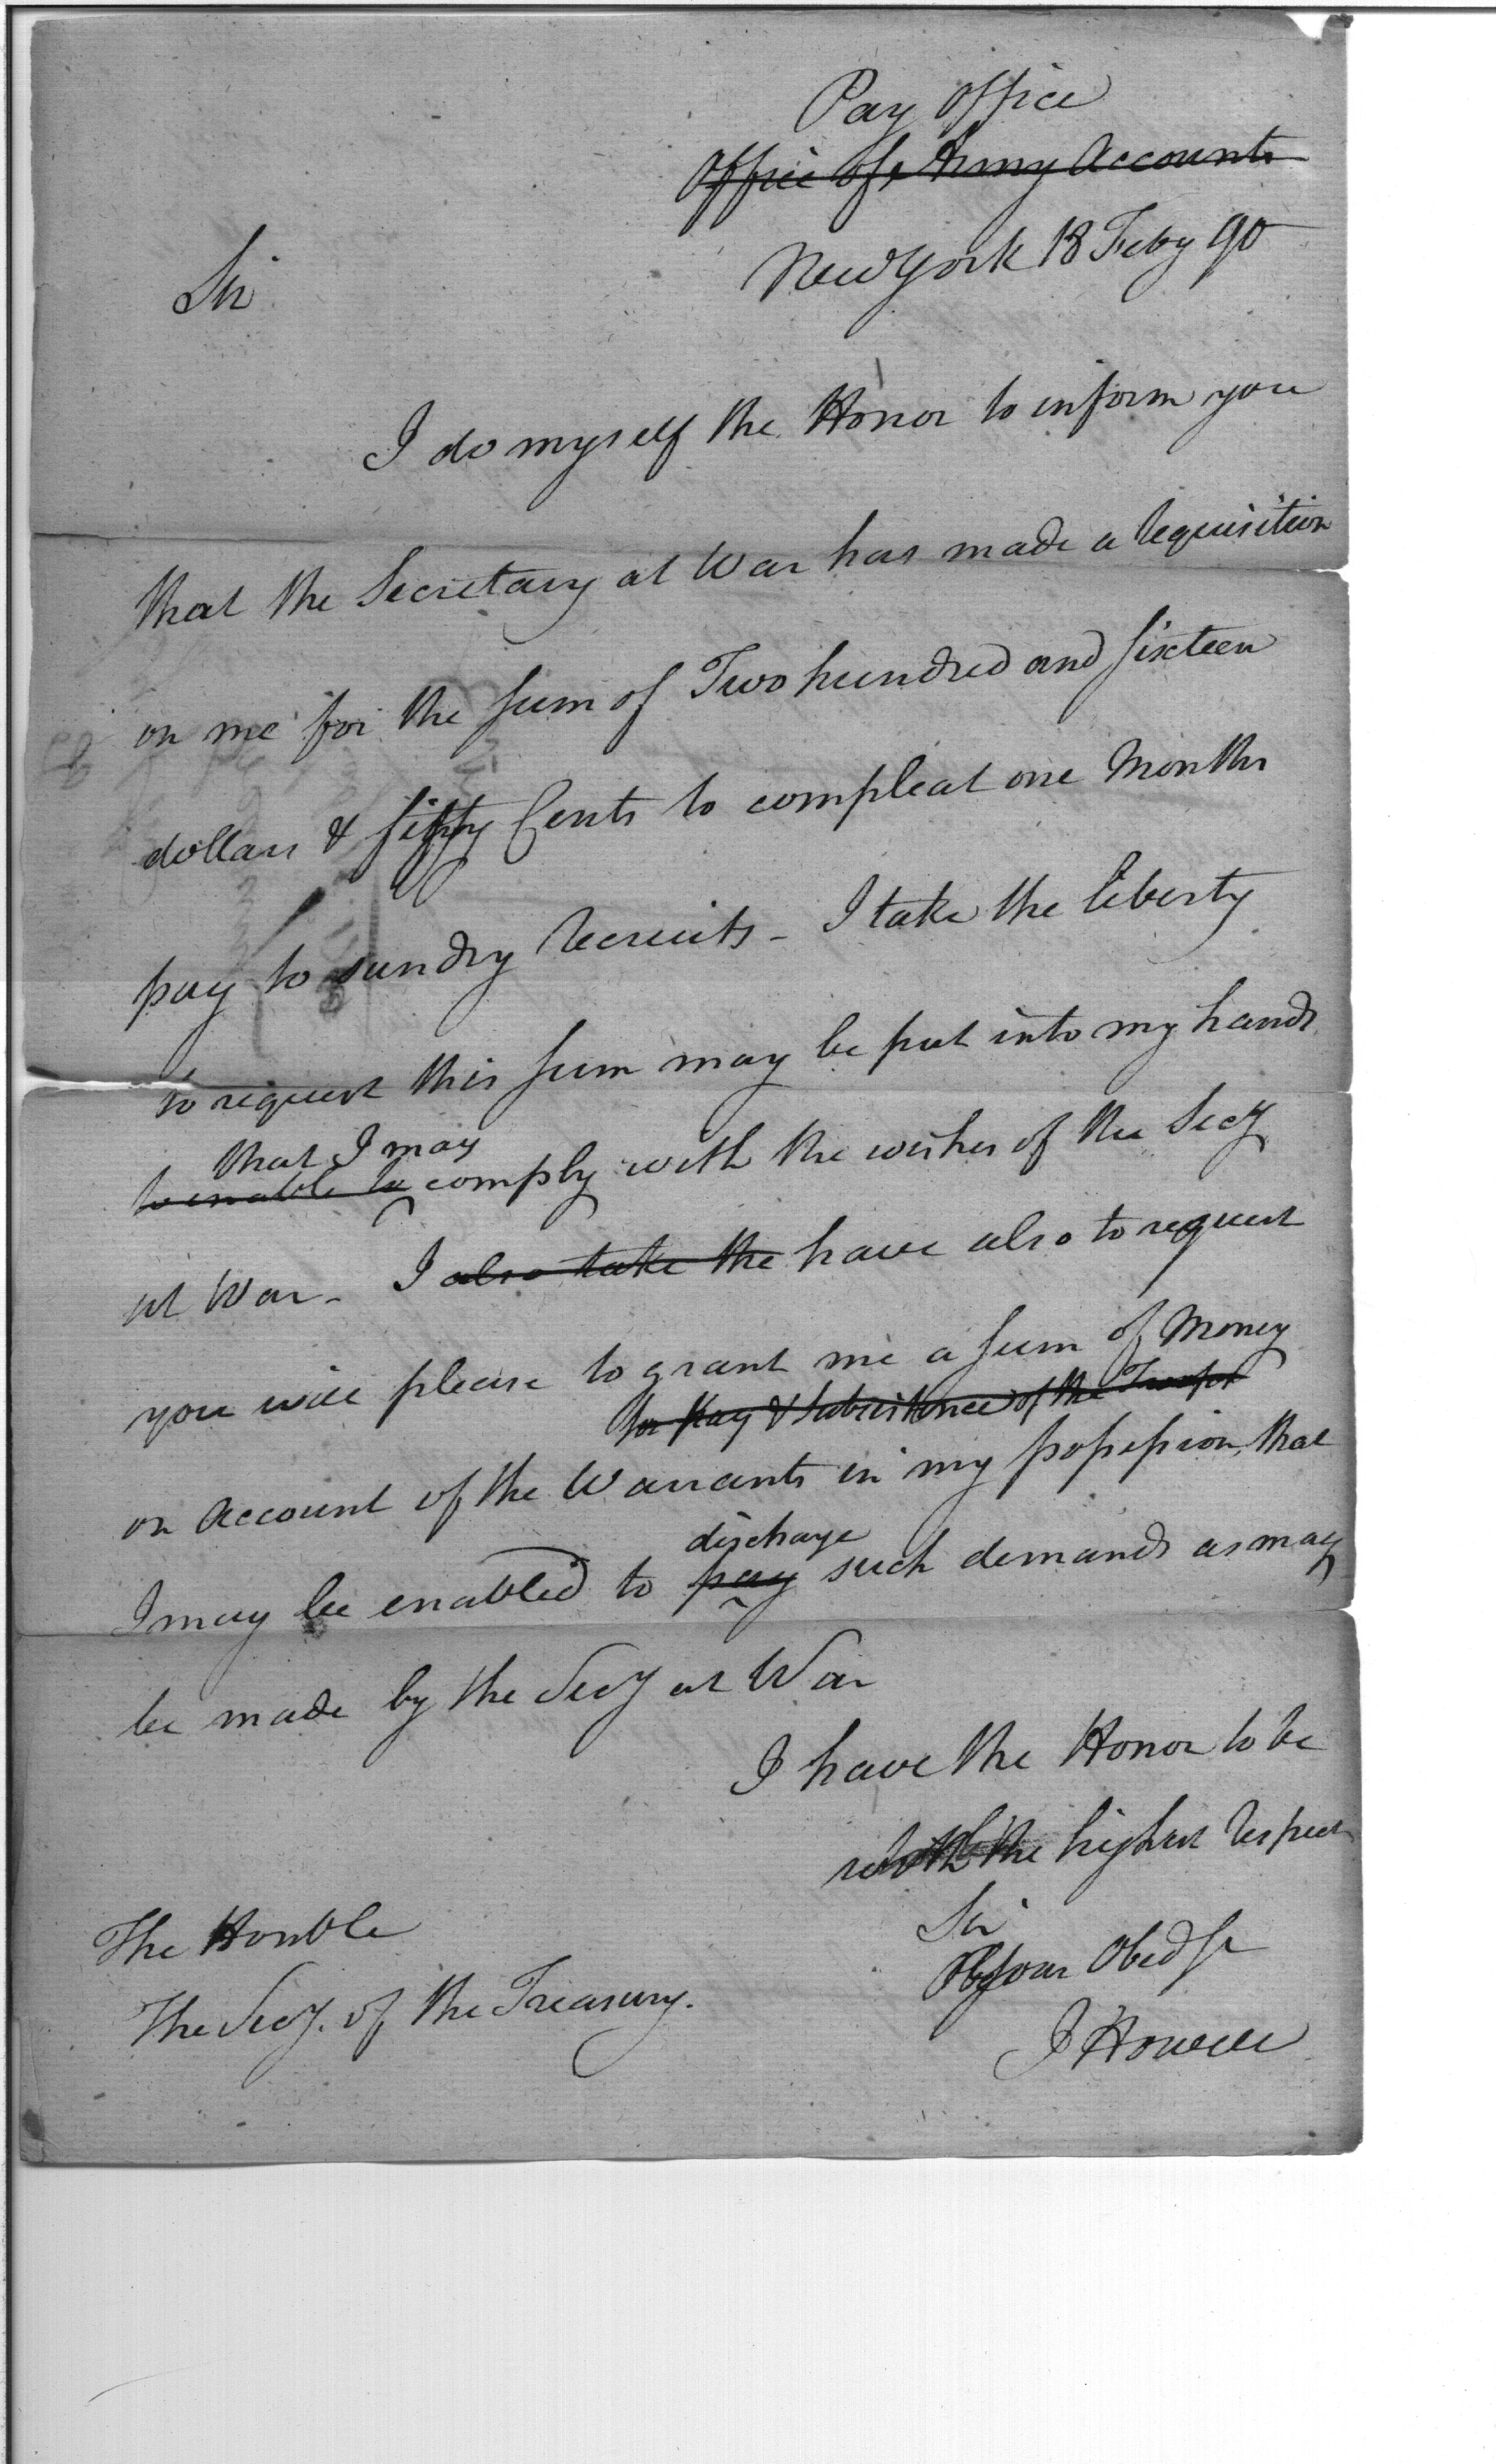 Pay Office
Office of Army Accounts
New York 18 Feby 90
Sir
I do myself the Honor to inform you
that the Secretary at War has made a requisition
on me for the sum of Two hundred and sixteen
dollars & fifty Cents to compleat one Months
pay to sundry recruits - I take the liberty
to request this sum may be put into my hands
that I may
to enable to comply with the wishes of the Secy
at War - I also take the have also to request
you will please to grant me a sum of Money
for Pay & Subsistence of the Troops
on Account of the Warrants in my possession, that
I may be enabled to pay such demands as may
discharge
be made by the Secy at War
I have the Honor to be
with the highest respect
Sir
your Obed St
J Howell
The Honble
The Secy. of the Treasury.